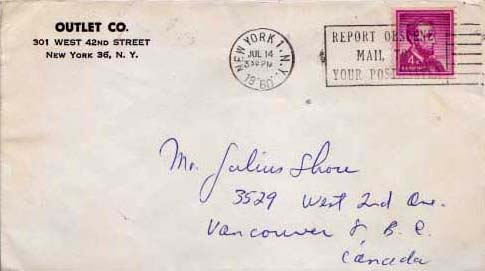 OUTLET CO.
301 WEST 42ND STREET
NEW YORK 36, N. Y.
NEW YORK 1, N.Y.
JUL 14
PM
1960
REPORT OBSCENE
MAIL
YOUR POST
4¢
Mr. Julius Shore
3529 West 2nd Ave.
Vancouver 8 B.C.
Canada